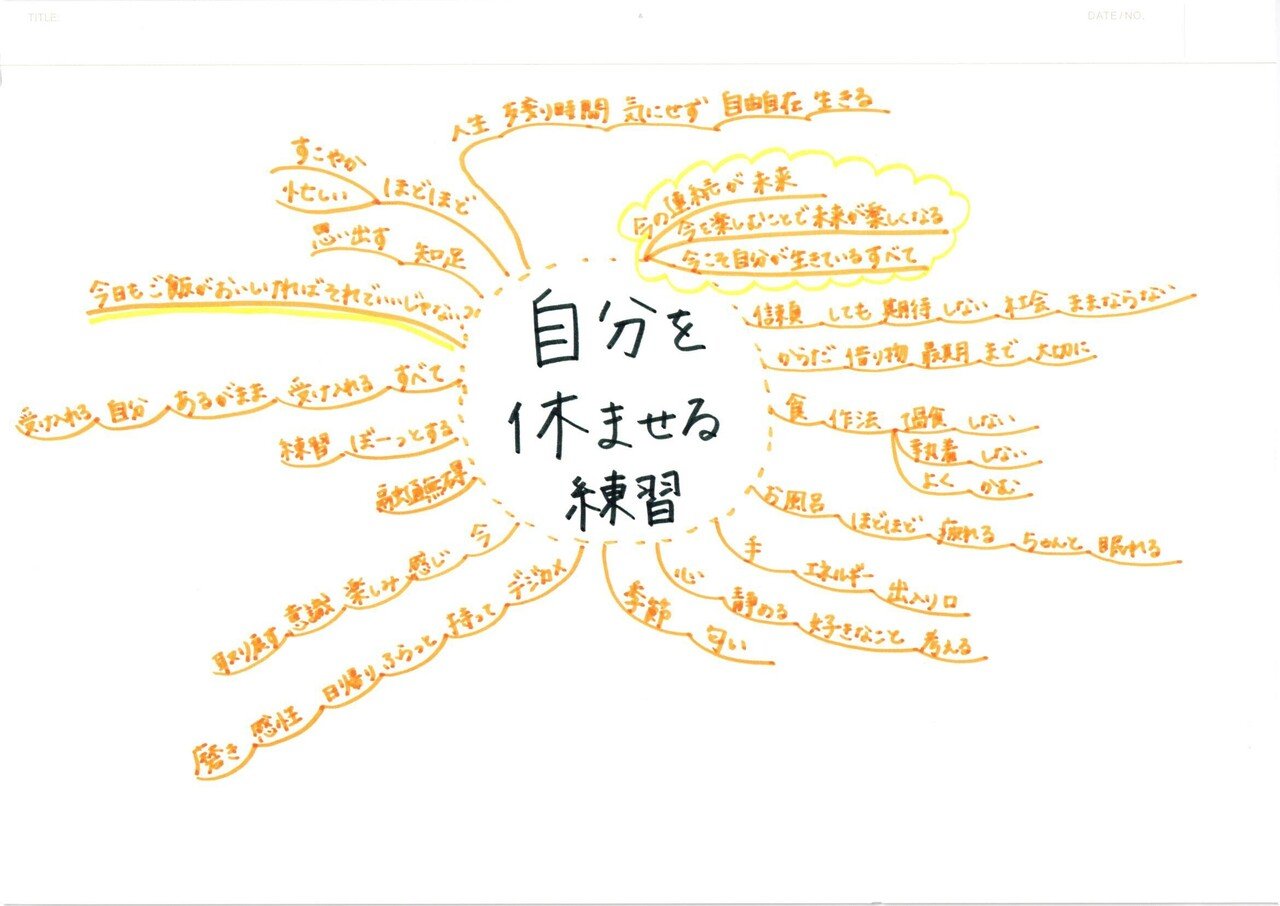 TITLE:
DATE/NO.
自分を
休ませる
練習
今の連続が未来
今を楽しむことで未来が楽しくなる
今こそ自分が生きているすべて
信頼 しても 期待 しない 社会 ままならない
からだ 借り物 最期 まで 大切に
食 作法 過食 しない
執着 しない
よく かむ
お風呂 ほどほど 疲れる ちゃんと 眠れる
手 エネルギー 出入り口
心 静める 好きなこと 考える
季節 匂い
デジカメ 持って ふらっと 日帰り 感性 磨き
今 感じ 楽しみ 意識 取り戻す
融通無碍
練習 ぼーっとする
受け入れる 自分 あるがまま 受け入れる すべて
今日もご飯がおいしければそれでいいじゃない?
思い出す 知足
すこやか
忙しい ほどほど
人生 残り時間 気にせず 自由自在 生きる